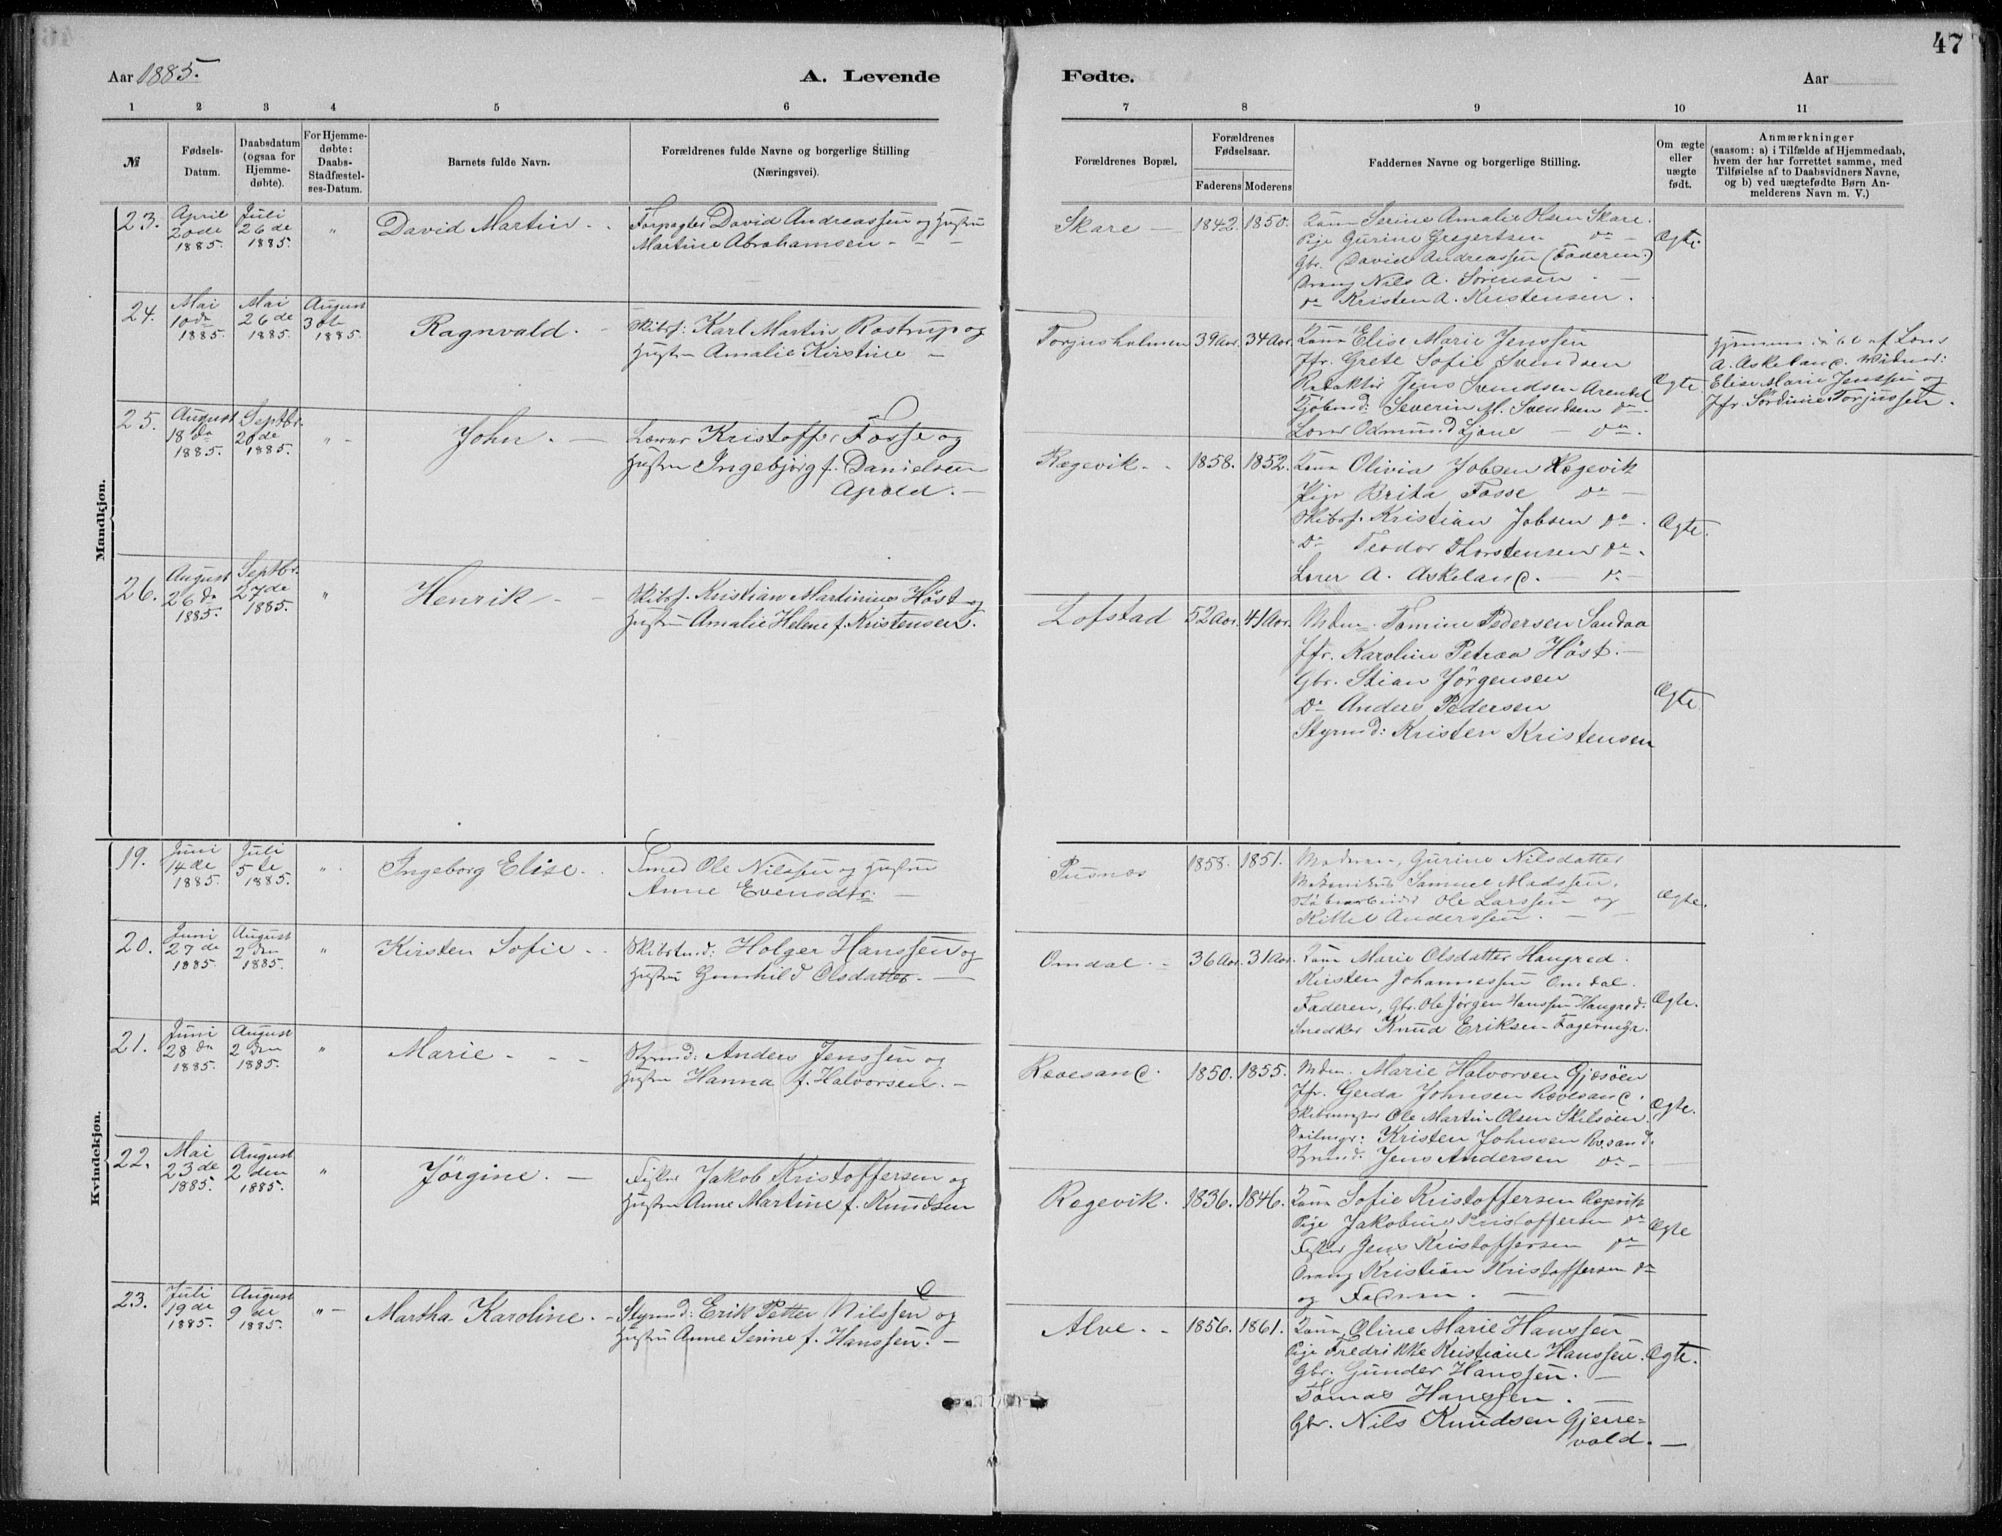 47
Aar 1885.
A. Levende
Fødte.
Aar
1 2 3 4 5 6 7 8 9 10 11
№
Fødsels-Datum.
Daabsdatum (ogsaa for Hjemme-døbte).
For Hjemme-døbte: Daabs-Stadfæstel-ses-Datum.
Barnets fulde Navn.
Forældrenes fulde Navne og borgerlige Stilling (Næringsvei).
Forældrenes Bopæl.
Forældrenes Fødselsaar.
Faderens Moderens
Faddernes Navne og borgerlige Stilling.
Om ægte eller uægte født.
Anmærkninger
(saasom: a) i Tilfælde af Hjemmedaab,
hvem der har forrettet samme, med
Tilføielse af to Daabsvidners Navne,
og b) ved uægtefødte Børn An-
melderens Navn m. V.)
Mandkjøn.
23. April 20de 1885. Juli 26de 1885. " David Martin
Forpagter David Andreassen og Hustru
Martine Abrahamsen
Skare 1842. 1850.
Kone Serine Amalie Olsen Skare.
Pige Gurine Gregertsen do
Gbr. (David Andreassen (Faderen.)
Nils A. Sørensen
do Kristen A. Kristensen.
Ægte.
24. Mai 10de 1885. Mai 26de 1885. August 30te 1885. Ragnvald.
Skibsf: Karl Martin Rostrup og
Hustru Amalie Kirstine
Torjusholmen 39 Aar. 34 Aar.
Kone Elise Marie Jenssen
Jfr. Grete Sofie Svendsen
Redaktør Jens Svendsen Arendal
Kjøbmd: Severin M. Svendsen do
Lærer Odmund Ljone do
Ægte.
af Lærer
A. Askeland. Vidner:
Elise Marie Jenssen og
Jfr. Sørdine Torjussen.
25. August 18de 1885. Septbr. 20de 1885. " John.
Lærer Kristoffer Fosse og
Hustru Ingebjørg f. Danielsen
Apold.
Rægevik 1858. 1852.
Kone Olivia Jobsen Rægevik
Pige Brita Fosse do
Skibsf. Kristian Jobsen do
Do Teodor Thorstensen do.
Lærer A. Askeland. do
Ægte.
26. August 26de 1885. Septbr. 27de 1885. " Henrik
Skibsf. Kristian Martinius Høst og
Hustru Amalie Helene f. Kristensen.
Lofstad 52 Aar. 41 Aar.
Mdm. Tomine Pedersen Sandaa
Jfr. Karoline Petrea Høst.
Gbr. Stian Jørgensen
Do Anders Pedersen
Styrmd: Kristen Kristensen
Ægte.
Kvindekjøn.
19. Juni 14de 1885. Juli 5te 1885. " Ingeborg Elise.
Smed Ole Nilssen og Hustru
Anne Evensdtr.
Pusnæs 1858. 1851.
Moderen, Gurine Nilsdatter
Samuel Madssen,
Ole Larssen og
Kittel Anderssen.
Ægte.
20. Juni 27de 1885. August 2den 1885. " Kirsten Sofie
Skibstmd: Holger Hanssen og
Hustru Gunhild Olsdatter.
Omdal. 36 Aar. 31 Aar.
Kone Marie Olsdatter Haugred.
Kirsten Johannessen Omdal.
Faderen, Gbr. Ole Jørgen Hanssen Haugred.
Snedker Knud Eriksen Fagermyr.
Ægte.
21. Juni 28de 1885. August 2den 1885. " Marie
Styrmd: Anders Jenssen og
Hustru Hanna f. Halvorsen.
Revesand. 1850. 1855.
Mdm. Marie Halvorsen Gjesøen
Jfr. Gerda Johnsen Revesand.
Ole Martin Olsen Skilsøen.
Seilmgr: Kristen Johnsen Revsand.
Styrmd. Jens Andersen do
Ægte.
22. Mai 23de 1885. August 2den 1885. " Jørgine.
Fisker Jakob Kristoffersen og
Hustru Anne Martine f. Knudsen
Rægevik. 1836. 1846.
Kone Sofie Kristoffersen Rægevik
Pige Jakobine Kristoffersen do
Fisker Jens Kristoffersen do
Kristian Kristoffersen do
og Faderen.
Ægte
23. Juli 19de 1885. August 9de 1885. " Martha Karoline.
Styrmd: Erik Petter Nilssen og
Hustru Anne Serine f. Hanssen.
Alve. 1856. 1861.
Kone Oline Marie Hanssen
Pige Fredrikke Kristiane Hanssen.
Gbr. Gunder Hanssen.
Tomas Hanssen.
Gbr. Nils Knudsen Gjerre-
vald.
Ægte.